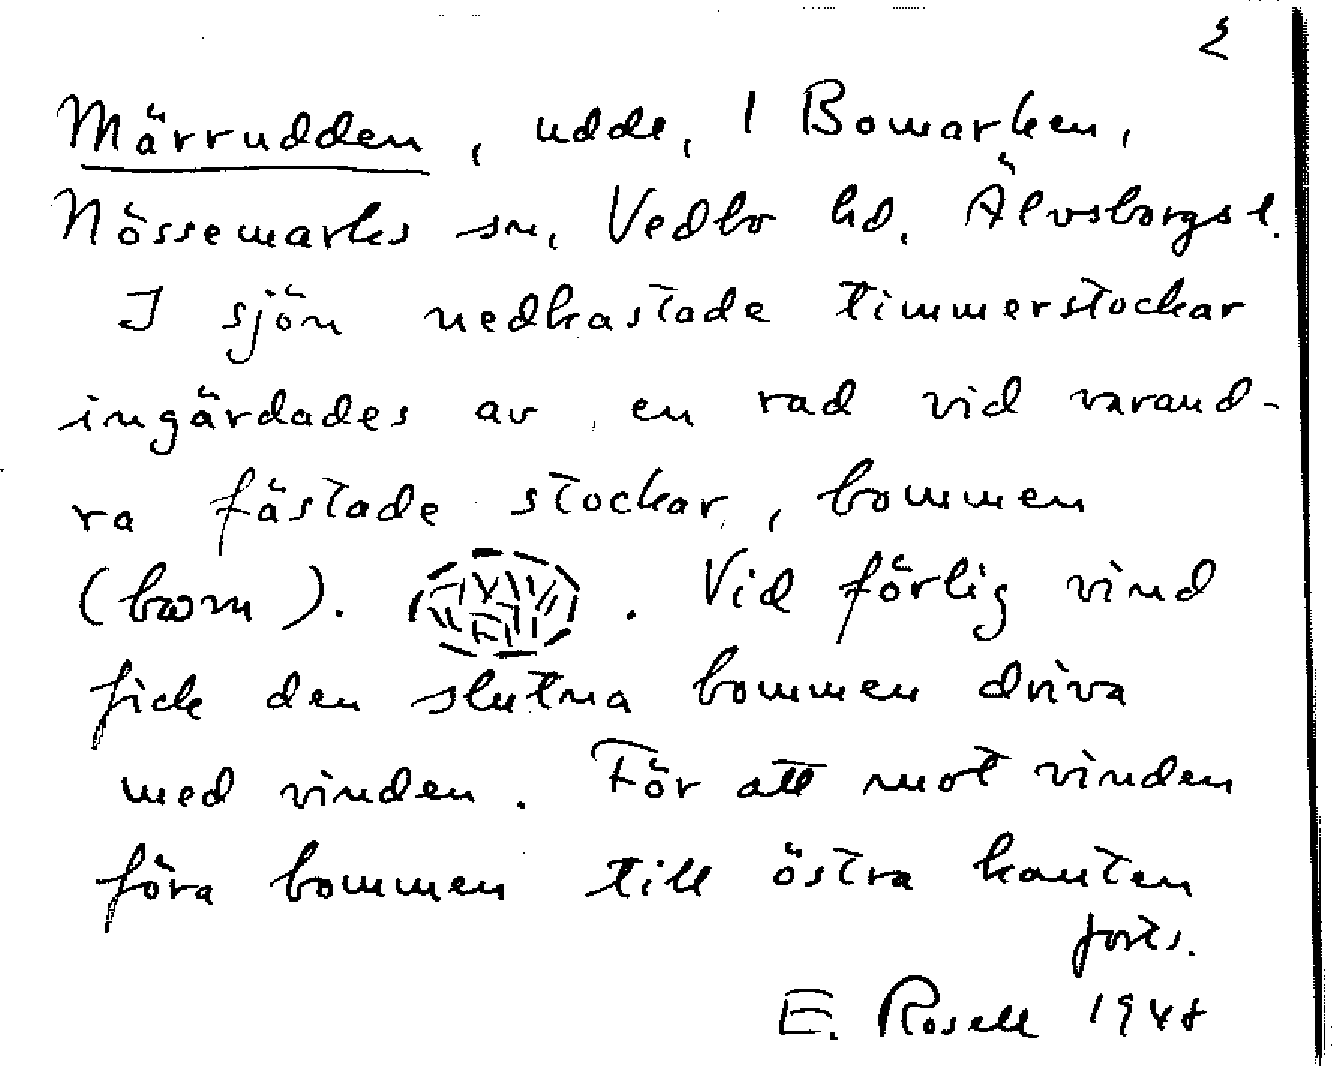 2
Märrudden, udde, 1 Bowarken,
Nössemarks sn, Vedbo hd. Älvsborgs l.
I sjön nedkastade timmerstockar
ingärdades av en rad vid varand-
ra fästade stockar, bommen
(bωm). . Vid förlig vind
fick den slutna bommen driva
med vinden. För att mot vinden
föra bommen till östra kanten
forts.
E. Rosell 1948